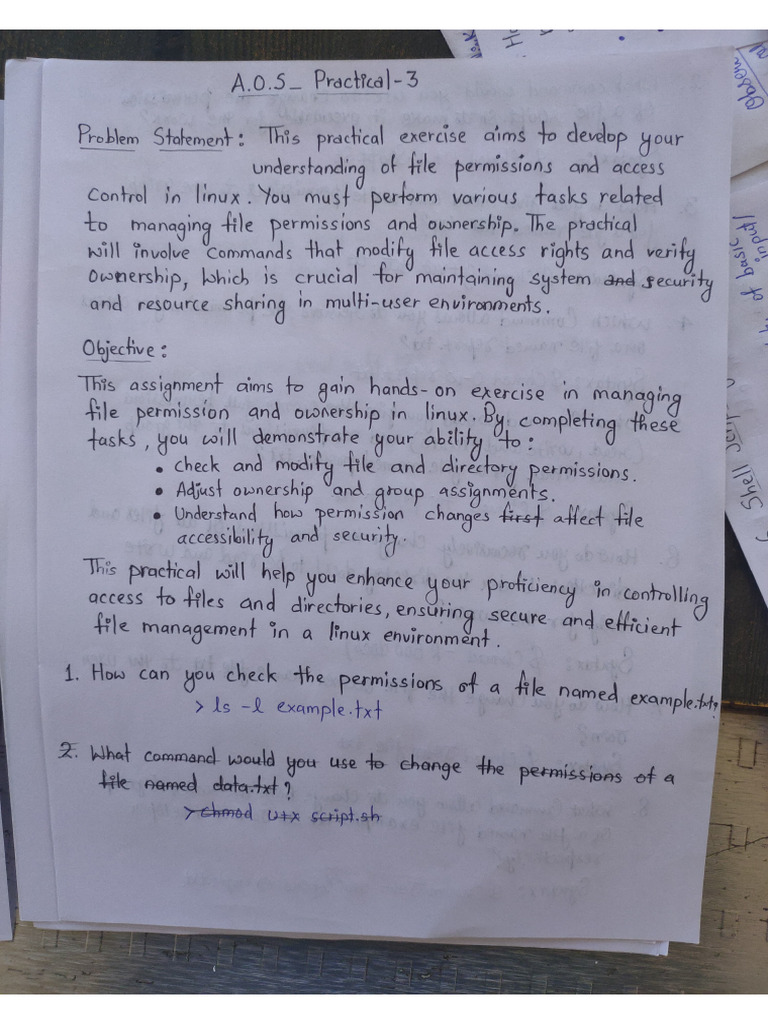 A.O.S_ Practical-3
Problem Statement: This practical exercise aims to develop your
understanding of file permissions and access
control in linux. You must perform various tasks related
to managing file permissions and ownership. The practical
will involve commands that modify file access rights and verify
ownership, which is crucial for maintaining system and security
and resource sharing in multi-user environments.
Objective:
This assignment aims to gain hands-on exercise in managing
file permission and ownership in linux. By completing these
tasks, you will demonstrate your ability to:
• check and modify file and directory permissions.
• Adjust ownership and group assignments.
• Understand how permission changes first affect file
accessibility and security.
This practical will help you enhance your proficiency in controlling
access to files and directories, ensuring secure and efficient
file management in a linux environment.
1. How can you check the permissions of a file named example.txt?
> ls -l example.txt
2. What command would you use to change the permissions of a
file named data.txt?
> chmod u+x script.sh
Observ
of basic
input/
Shell